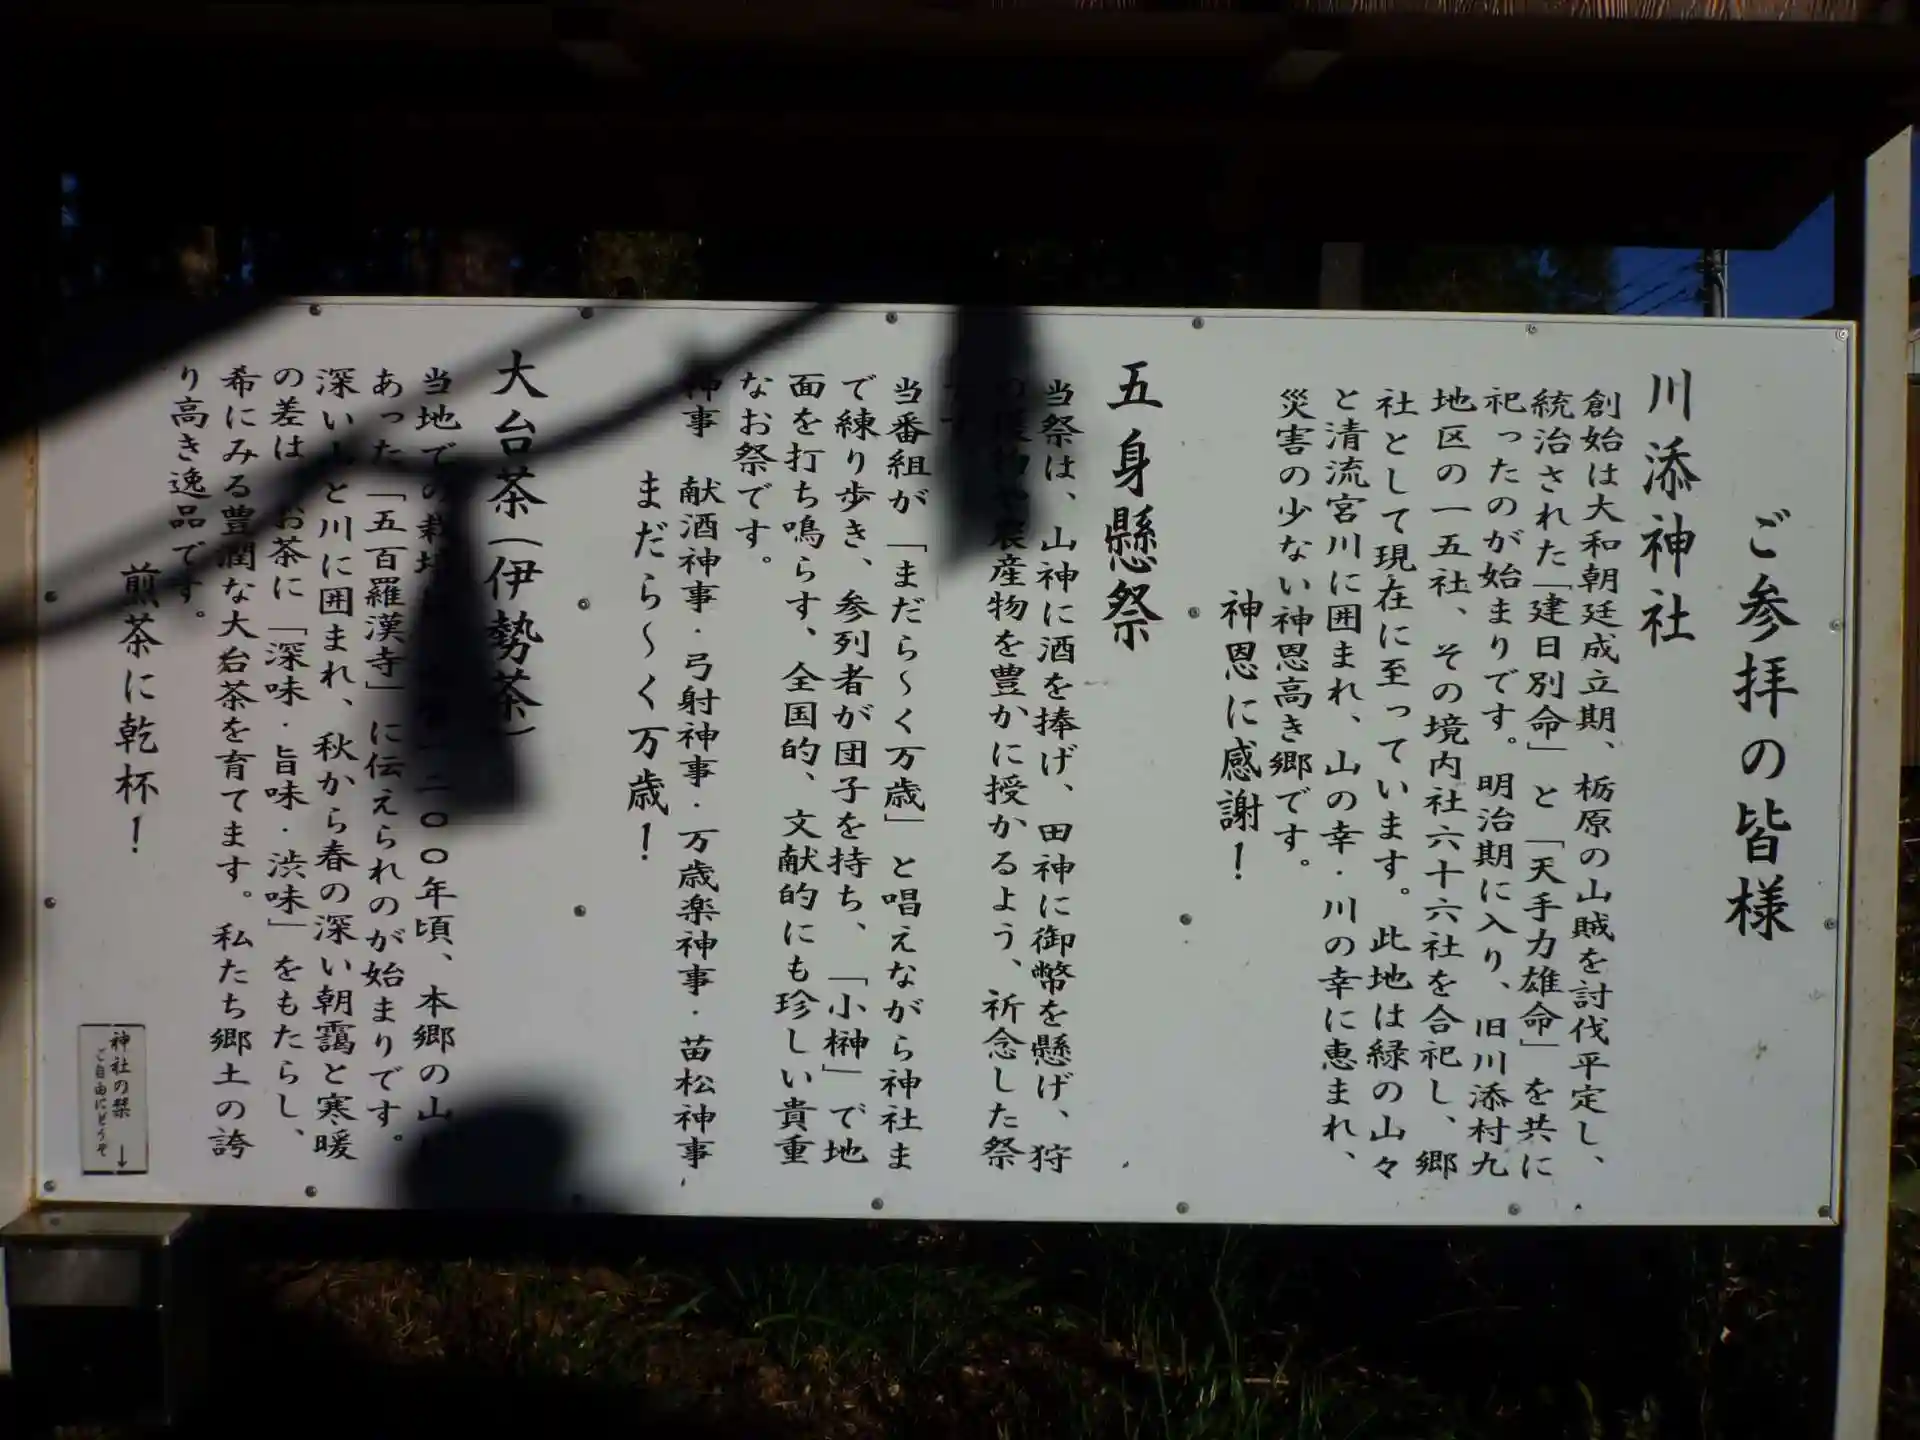 ご参拝の皆様
川添神社
創始は大和朝廷成立期、栃原の山賊を討伐平定し、
統治された「建日別命」と「天手力雄命」を共に
祀ったのが始まりです。明治期に入り、旧川添村九
地区の一五社、その境内社六十六社を合祀し、郷
社として現在に至っています。此地は緑の山々
と清流宮川に囲まれ、山の幸・川の幸に恵まれ、
災害の少ない神恩高き郷です。
神恩に感謝！
五身懸祭
当祭は、山神に酒を捧げ、田神に御幣を懸げ、狩
の獲物や農産物を豊かに授かるよう、祈念した祭
です
当番組が「まだら〜く万歳」と唱えながら神社ま
で練り歩き、参列者が団子を持ち、「小榊」で地
面を打ち鳴らす、全国的、文献的にも珍しい貴重
なお祭です。
神事　献酒神事・弓射神事・万歳楽神事・苗松神事
まだら〜く万歳！
大台茶（伊勢茶）
当地での栽培 二〇〇年頃、本郷の山
あった「五百羅漢寺」に伝えられのが始まりです。
深い山と川に囲まれ、秋から春の深い朝靄と寒暖
の差は、お茶に「深味・旨味・渋味」をもたらし、
希にみる豊潤な大台茶を育てます。私たち郷土の誇
り高き逸品です。
煎茶に乾杯！
神社の栞
ご自由にどうぞ
↓